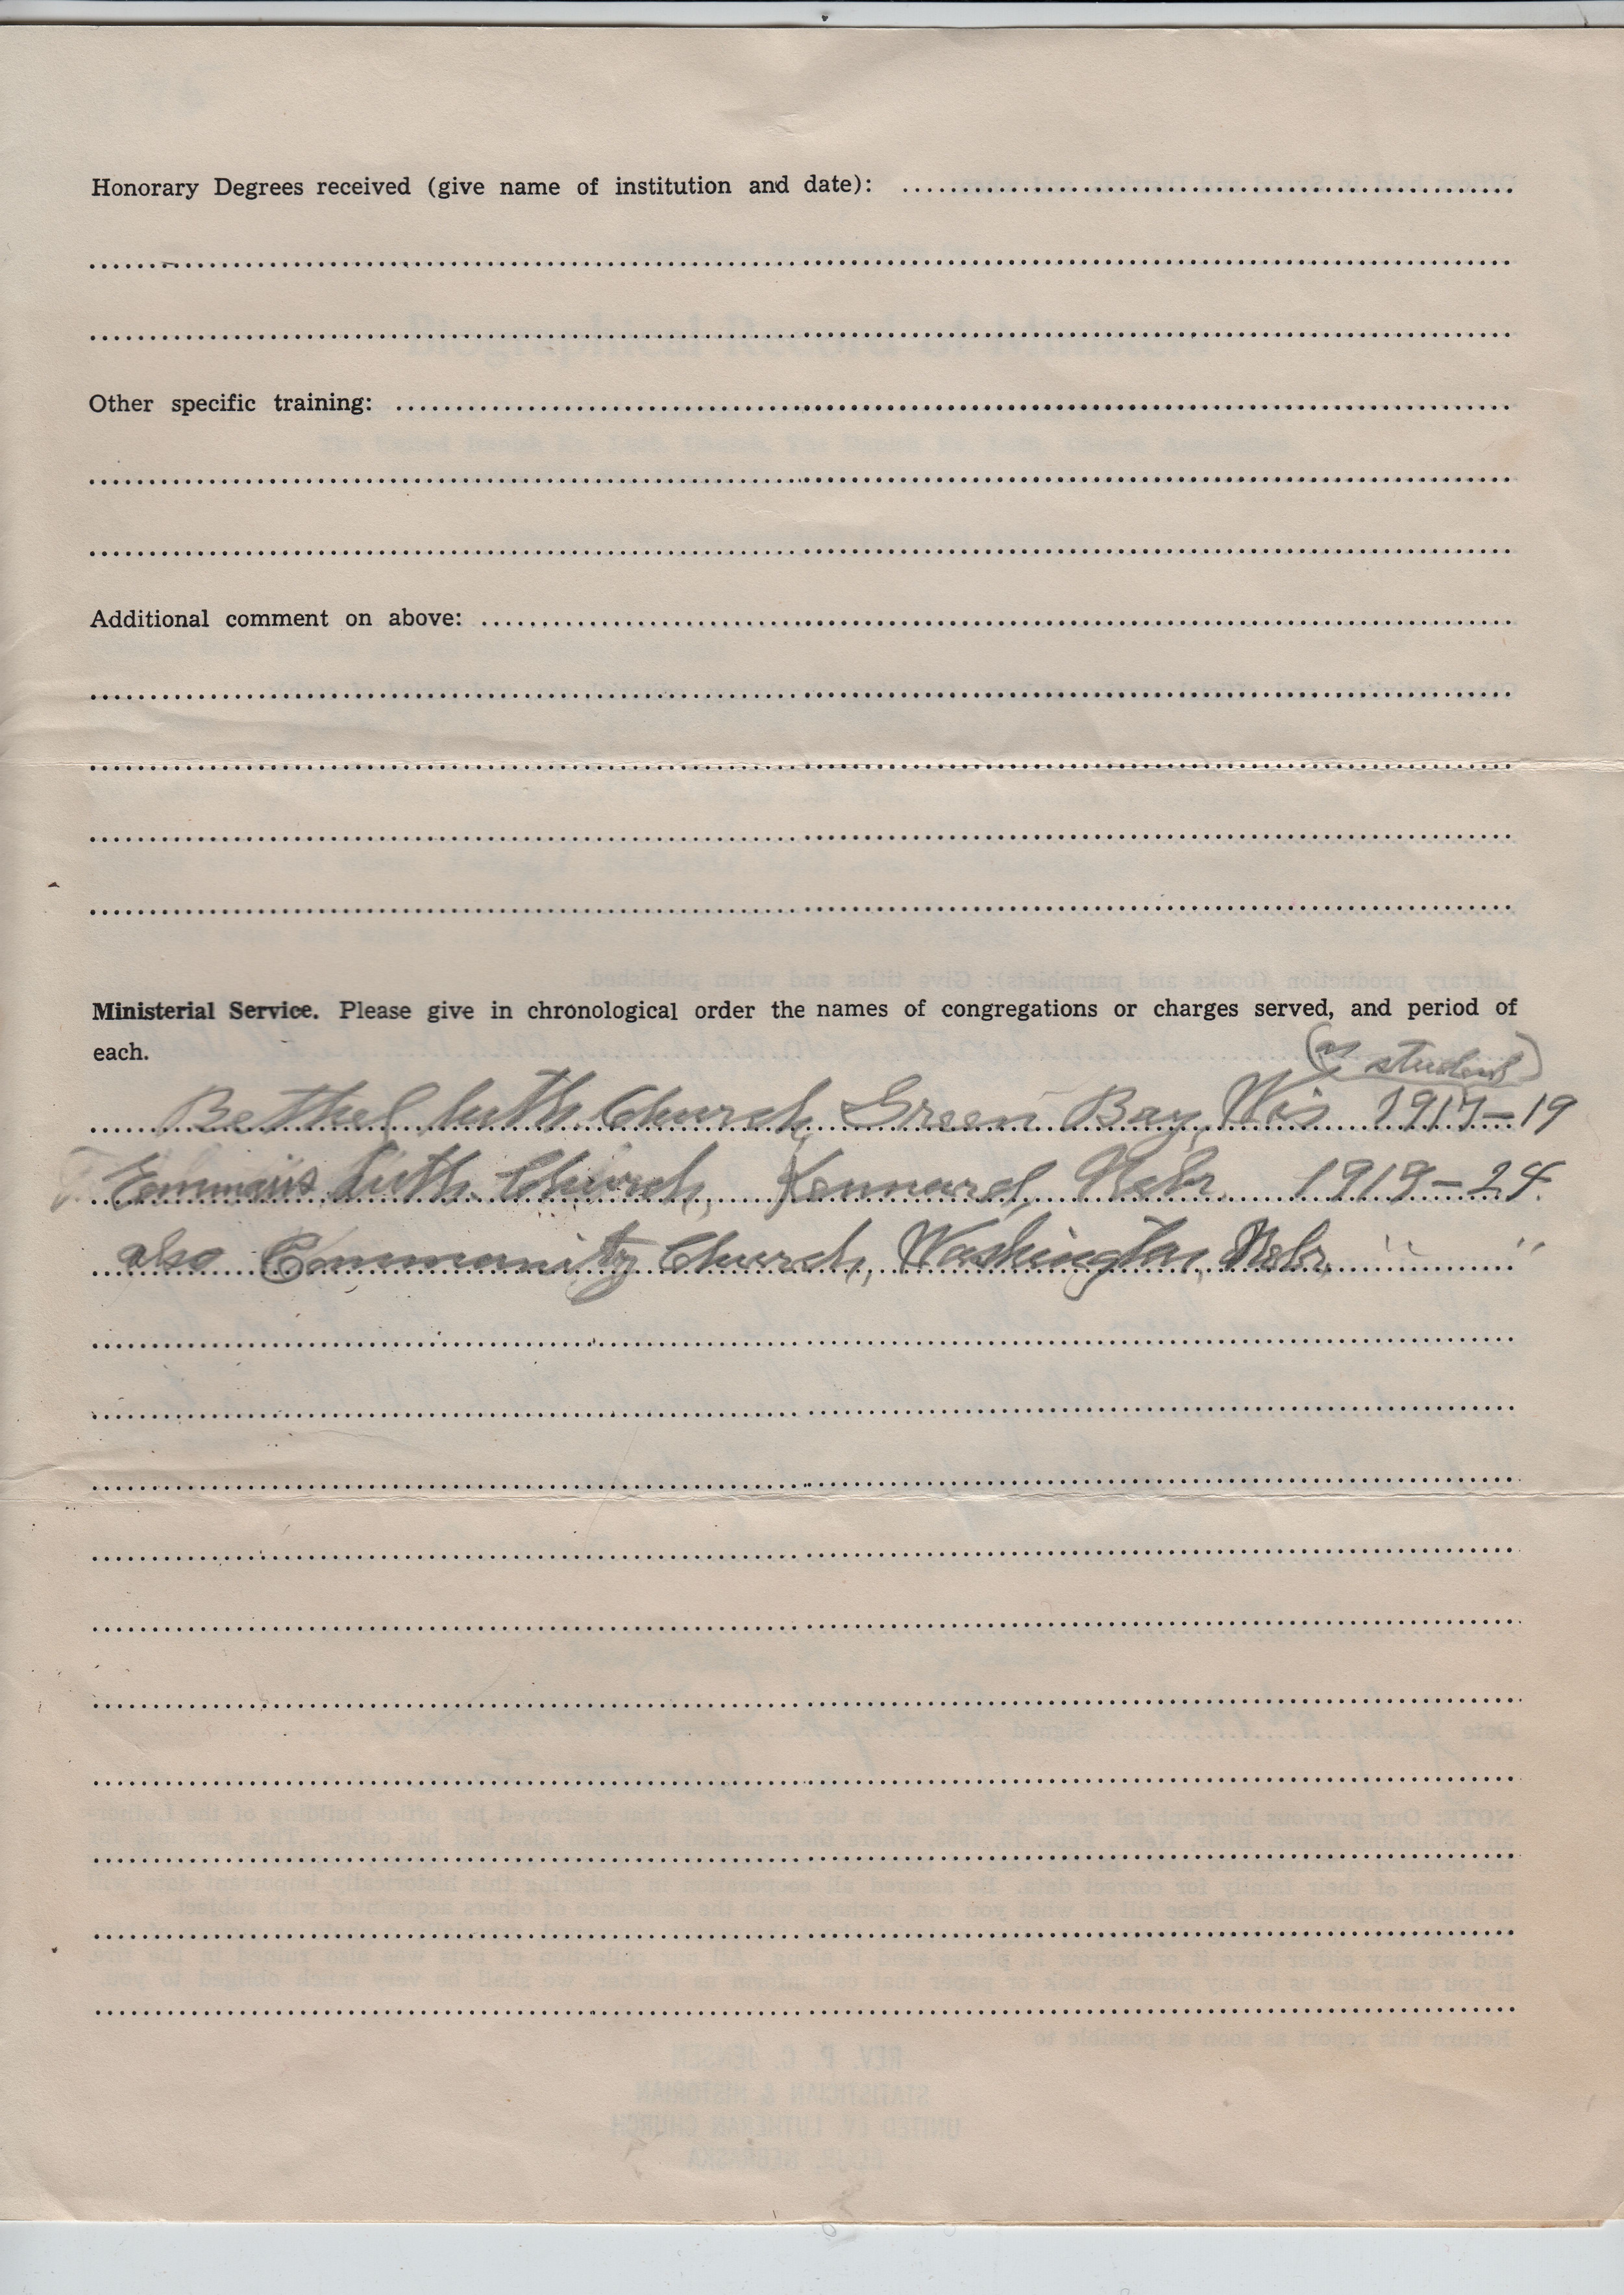 Honorary Degrees received (give name of institution and date):
Other specific training:
Additional comment on above:
Ministerial Service. Please give in chronological order the names of congregations or charges served, and period of
each.
(as student)
Bethel Luth. Church, Green Bay, Wis 1917-19
Emmaus Luth. Church, Kennard, Nebr. 1919-24.
also Community Church, Washington, Nebr. " "